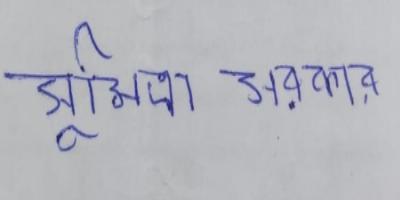 সুমিত্রা সরকার